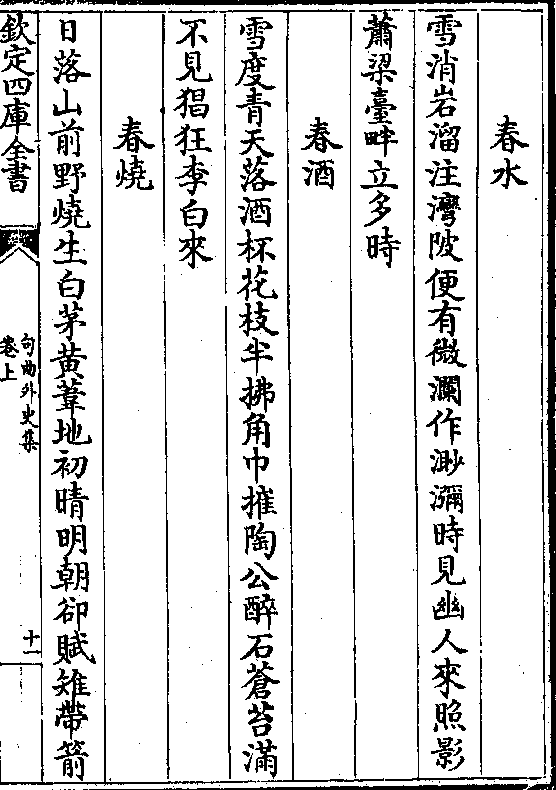 春水
雪消岩溜注灣陂便有微瀾作渺瀰時見幽人來照影
蕭梁臺畔立多時
春酒
雪度青天落酒杯花枝半拂角巾摧陶公醉石蒼苔滿
不見猖狂李白來
春燒
日落山前野燒生白茅黃葦地初晴明朝卻賦雉帶箭
欽定四庫全書
句曲外史集
卷上
十一